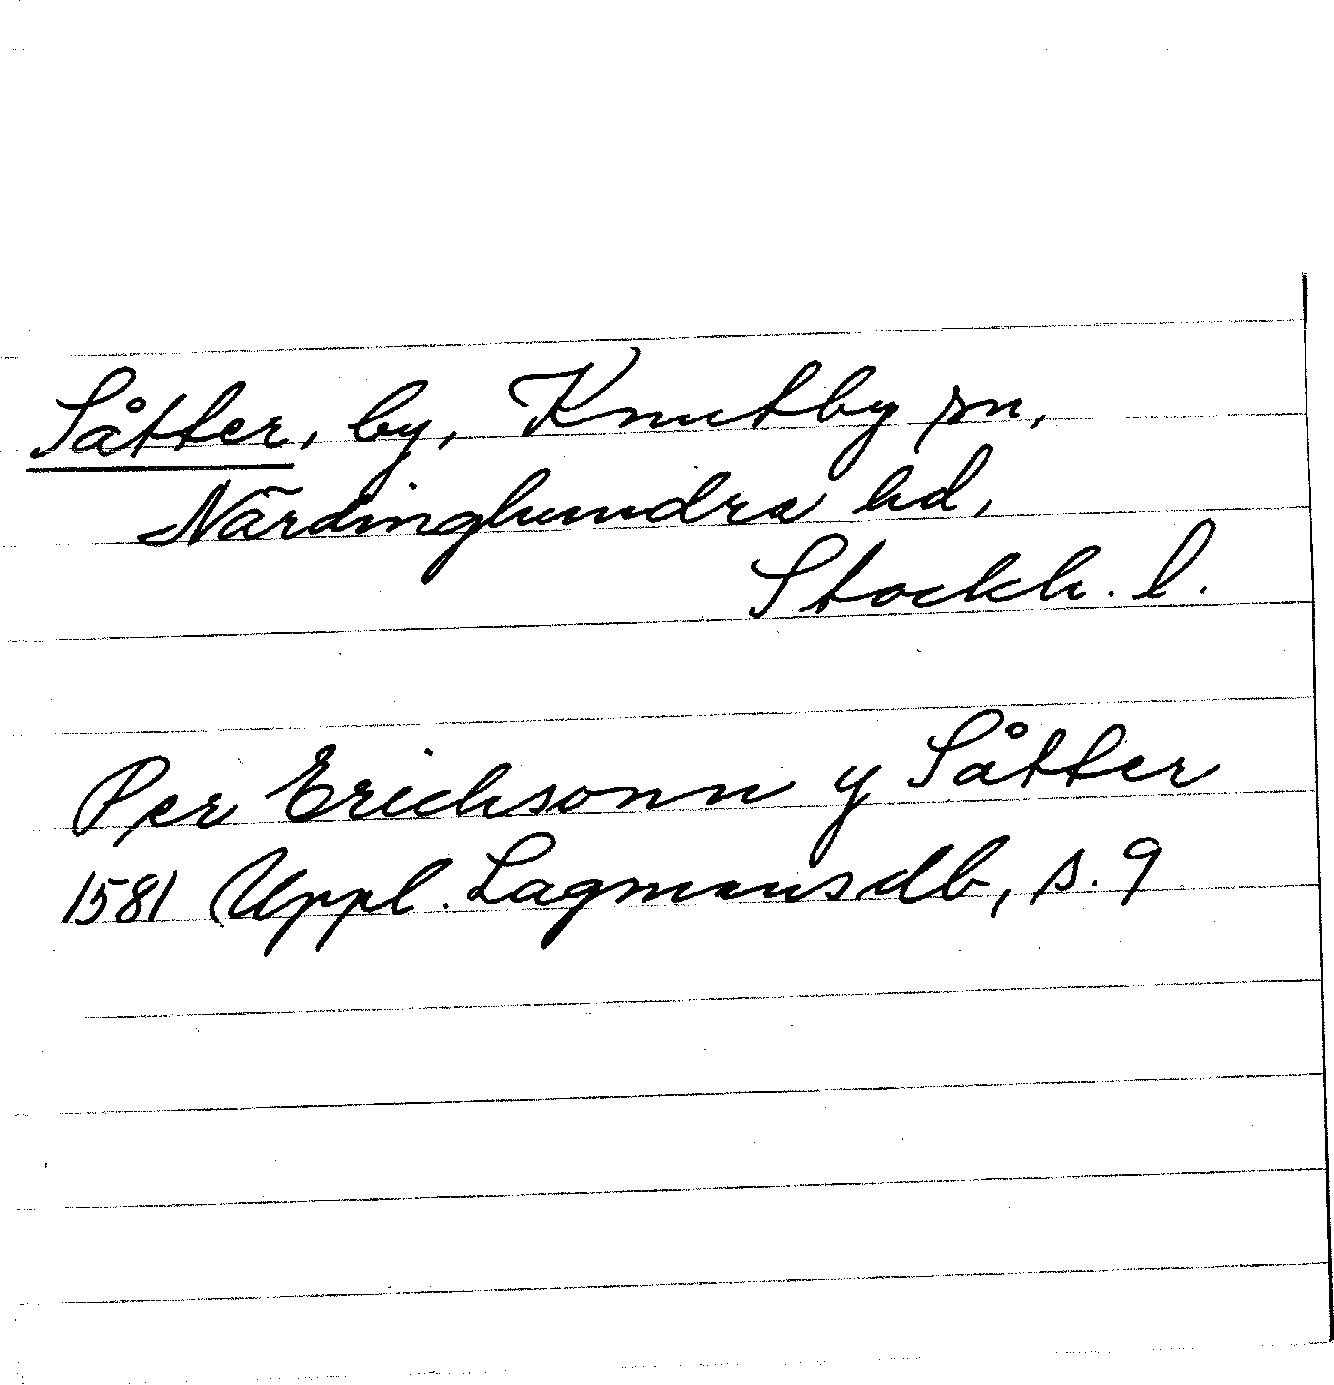 Såtter, by, Knutby sn,
Närdinghundra hd,
Stockh. l.
Per Erichsonn y Såtter
1581 Uppl. Lagmansdb, s. 9